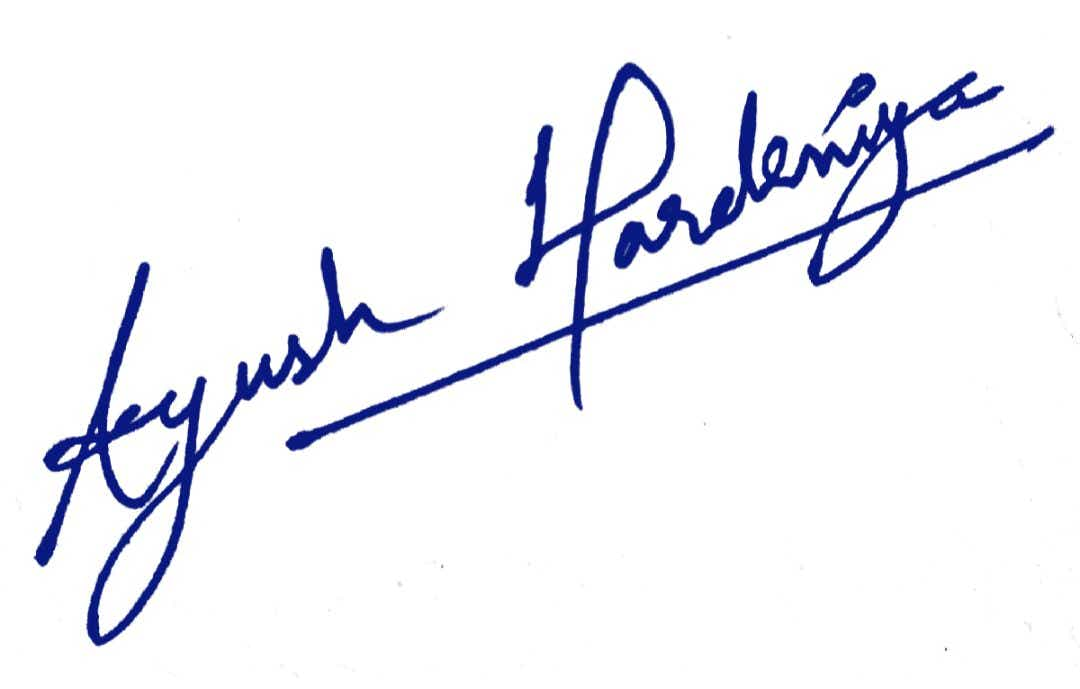 Ayush Hardeniya